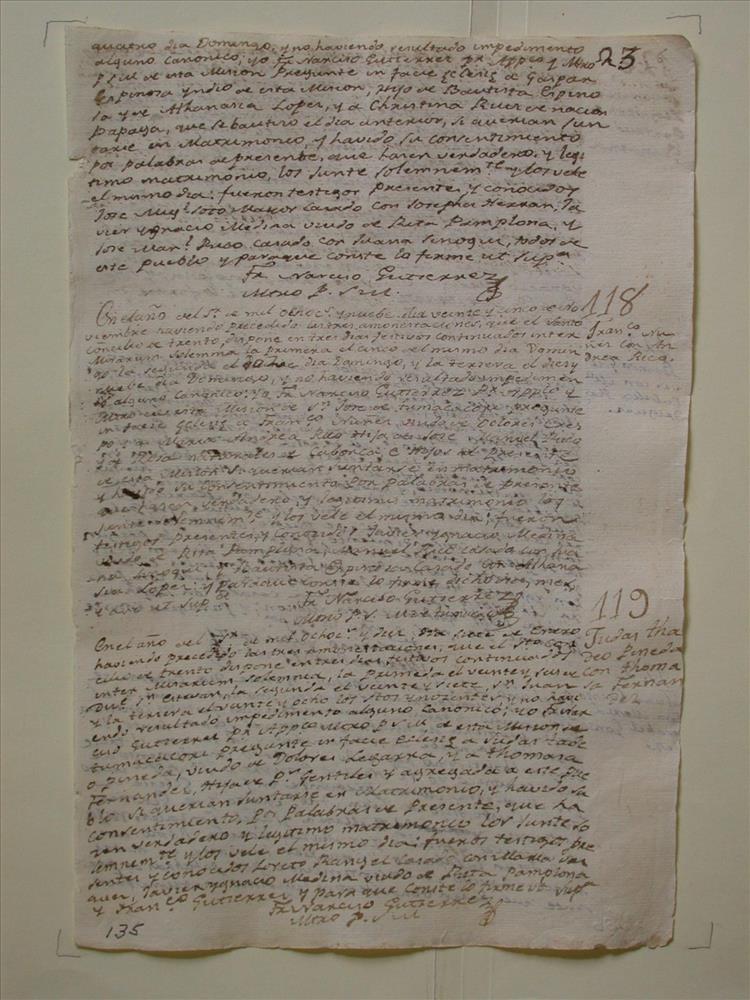 quatro dia Domingo, y no haviendo resultado impedimento
alguno canonico, yo Fr Narciso Gutierrez Pr Appco y Mtro
P. S. M. de esta Mision Pregunte in facie Eclesiæ a Gaspar
Espinosa yndio de esta Mision, Hijo de Bautista Espino
sa y de Athanasia Lopes, y a Christina Ruis de nacion
Papaga, que se bautiso el dia anterior, si querian Jun
tarse en Matrimonio, y havido su consentimiento
por palabras de presente, que hasen verdadero, y legi
timo matrimonio, los Junte solemnemte y los vele
el mismo dia: fueron testigos presentes, y conocidos
Jose Migl Soto Mayor casado con Josepha Herran, Ja
vier Ygnacio Medina viudo de Rita Pamplona, y
Jose Manl Ruso casado con Juana Sinogui, todos de
este Pueblo y para que conste lo firme ut supa
Fr Narciso Gutierrez
Mtro P. S. M.
23
En el año del Sr de mil ochocs y nuebe dia veinte y cinco de No
viembre haviendo precedido las tres amonestaciones, que el santo
concilio de trento, dispone en tres dias festivos continuados inter
Misarum Solemnia la primera el cinco del mismo dia Domin
go la segunda el doce dia Domingo, y la tersera el dies y
nuebe dia Domingo, y no haviendo resultado impedimen
to alguno canonico: yo Fr Narciso Gutierrez Pr Appco y
Mtro de esta Mision de Sn Jose de tumacacori pregunte
in facie Eclesiæ a Franco Nuñes viudo de Dolores Cres
po y a Maria Andrea Rico Hija de Jose Manuel Rico
y de Rosa naturales de Caborca, e Hijos de Presente
de esta Mision si querian juntarse en matrimonio
y havido su consentimiento por palabras de presente
que hasen verdadero, y legitimo matrimonio los
Junte solemnemte y los vele el mismo dia: fueron
testigos presentes, y conocidos Javier Ygnacio Medina
viudo de Rita Pamplona, Manuel Rico casado con Jua
na Sinogui y Bautista Espinosa casado con Athana
sia Lopes, y para que conste lo firme dicho dia, mes,
y año ut supa
Fr Narciso Gutierrez
Mtro P. S. M. de tumacacori
118
Franco Nu
ñes con An
drea Rico.
En el año del Sr de mil ochocs y dies: dia siete de Enero
haviendo precedido las tres amonestaciones, que el sto con
cilio de trento dispone en tres dias festivos continuados
inter Misarum solemnia, la primera el veinte y seis
Dia Sn Estevan, la segunda el veinte y siete Sn Juan
y la tersera el veinte y ocho los Stos Ynocentes, y no havi
endo resultado impedimento alguno canonico, yo Fr Nar
ciso Gutierrez Pr Appco Mtro P. S. M. de esta Mision de
tumacacori Pregunte in facie Eclesiæ a Judas tade
o Pineda, viudo de Dolores Legarra, y a thomasa
Fernandes, Hija de Ps Gentiles y agregada a este Pue
blo si querian Juntarse en Matrimonio, y havido su
consentimiento, por Palabras de Presente, que ha
zen verdadero y legitimo matrimonio los Junte so
lemnemte y los vele el mismo dia: fueron testigos pre
sentes y conocidos Loreto Rangel Casado con Maria
Javier Ygnacio Medina viudo de Rita Pamplona
y Franco Gutierrez y para que Conste lo firme ut supa
Fr Narciso Gutierrez
Mtro P. S. M.
119
Judas tha
deo Pineda
con thoma
sa Fernan
des
135